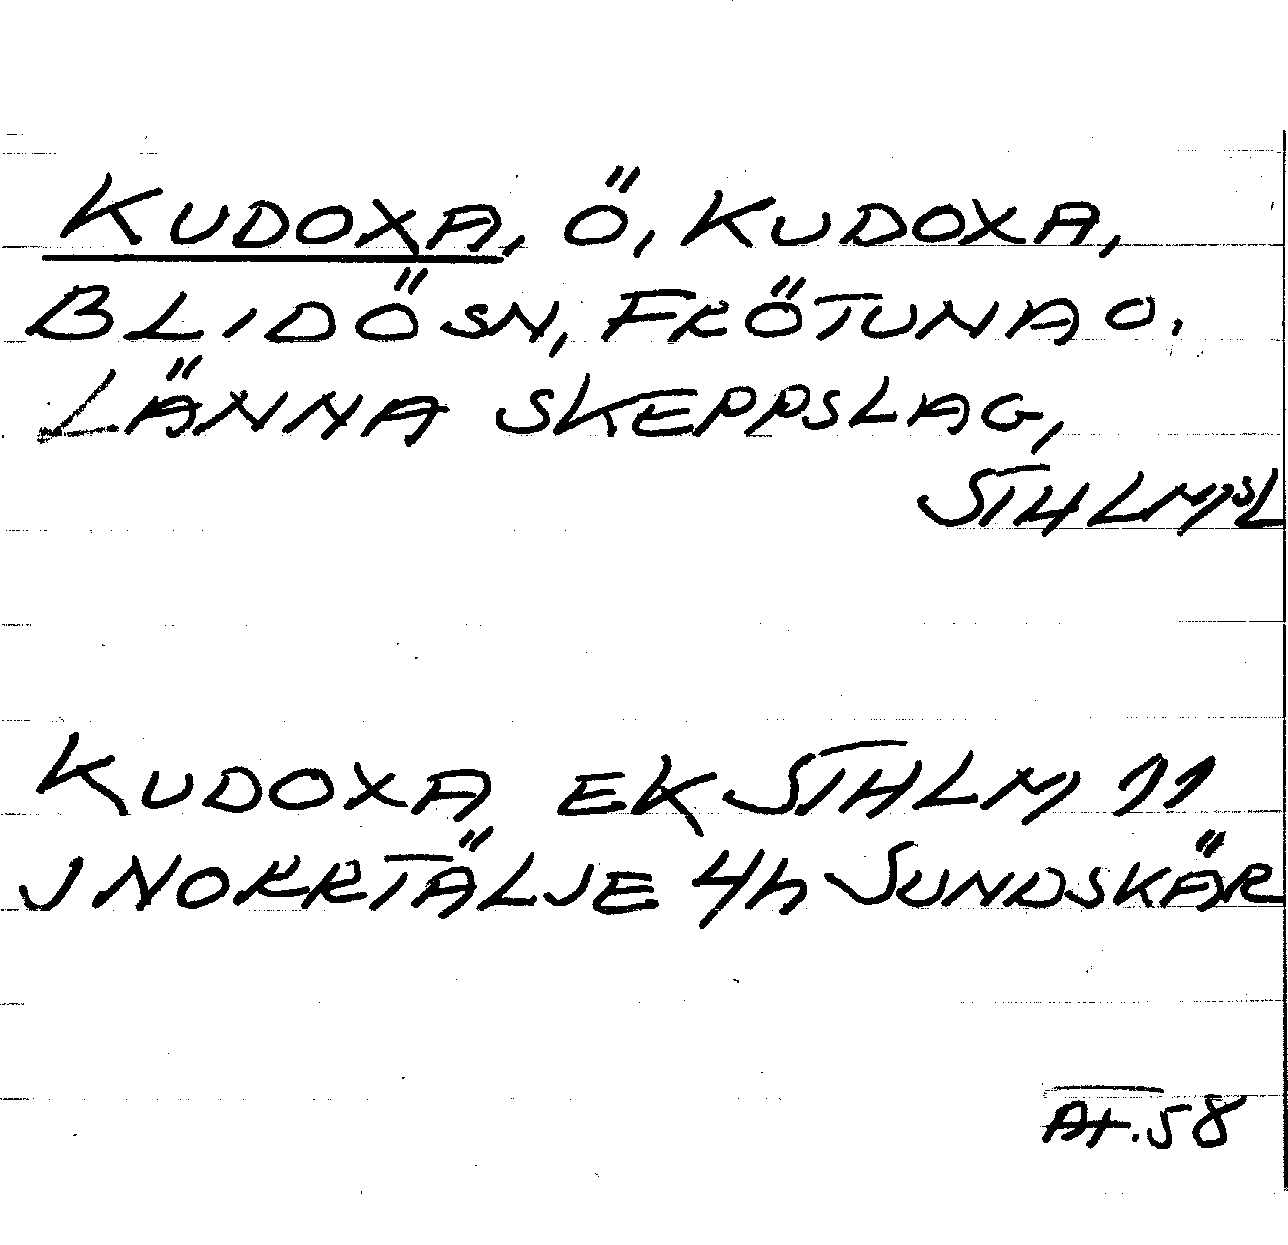 KUDOXA, Ö, KUDOXA,
BLIDÖSN, FRÖTUNA O.
LÄNNA SKEPPSLAG,
STHLMSL
KUDOXA EK STHLM 11
J NORRTÄLJE 4h SUNDSKÄR
At. 58